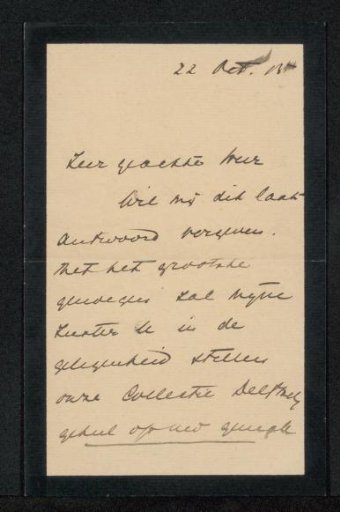 22 Oct.
Zeer geachte Heer
Wil mij dit laat
Antwoord vergeven.
Met het grootste
genoegen zal mijne
Zuster U in de
gelegenheid stellen
onze Collectie Delftsch
geheel op uw gemak